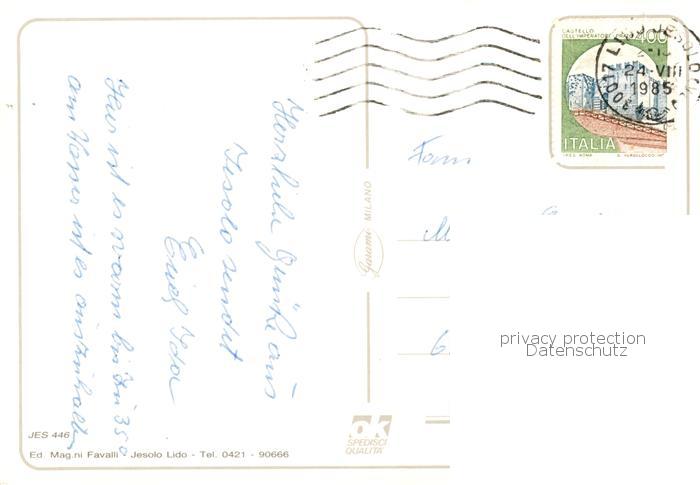 Herzliche Grüße aus
Jesolo sendet
Euch Ida
Hier ist es warm bis zu 35°
am Wasser ist es auszuhalten
Fam
M
6
CASTELLO
DELL'IMPERATORE
400
ITALIA
I.P.Z.S. ROMA
LIDO JESOLO
24-VIII
1985
30017
Garami MILANO
ok
SPEDISCI
QUALITA'
JES 446
Ed. Mag.ni Favalli - Jesolo Lido - Tel. 0421 - 90666
privacy protection
Datenschutz